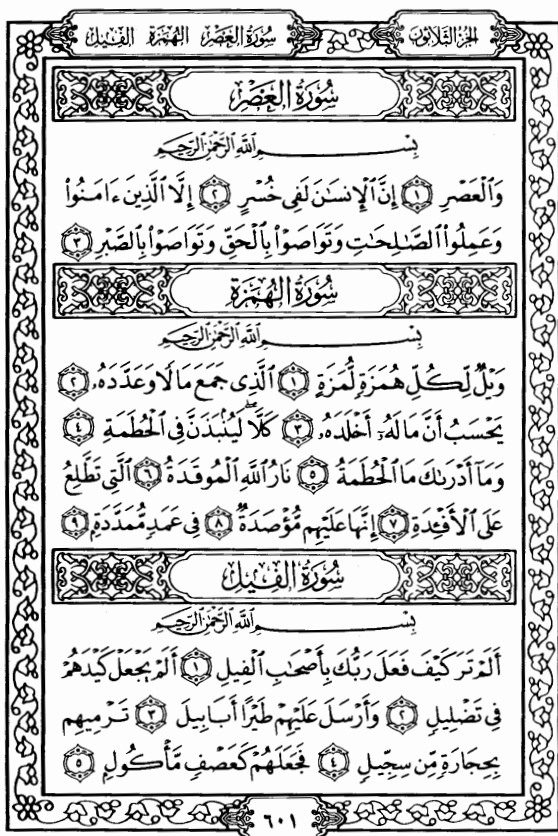 الجزء الثلاثون
سورة العصر الهمزة الفيل
سُورَةُ الْعَصْرِ
بِسْمِ ٱللَّهِ ٱلرَّحْمَٰنِ ٱلرَّحِيمِ
وَٱلْعَصْرِ ١ إِنَّ ٱلْإِنسَٰنَ لَفِى خُسْرٍ ٢ إِلَّا ٱلَّذِينَ ءَامَنُوا۟
وَعَمِلُوا۟ ٱلصَّٰلِحَٰتِ وَتَوَاصَوْا۟ بِٱلْحَقِّ وَتَوَاصَوْا۟ بِٱلصَّبْرِ ٣
سُورَةُ الْهُمَزَةِ
بِسْمِ ٱللَّهِ ٱلرَّحْمَٰنِ ٱلرَّحِيمِ
وَيْلٌ لِّكُلِّ هُمَزَةٍ لُّمَزَةٍ ١ ٱلَّذِى جَمَعَ مَالًا وَعَدَّدَهُۥ ٢
يَحْسَبُ أَنَّ مَالَهُۥٓ أَخْلَدَهُۥ ٣ كَلَّا ۖ لَيُنۢبَذَنَّ فِى ٱلْحُطَمَةِ ٤
وَمَآ أَدْرَىٰكَ مَا ٱلْحُطَمَةُ ٥ نَارُ ٱللَّهِ ٱلْمُوقَدَةُ ٦ ٱلَّتِى تَطَّلِعُ
عَلَى ٱلْأَفْـِٔدَةِ ٧ إِنَّهَا عَلَيْهِم مُّؤْصَدَةٌ ٨ فِى عَمَدٍ مُّمَدَّدَةٍۭ ٩
سُورَةُ الْفِيلِ
بِسْمِ ٱللَّهِ ٱلرَّحْمَٰنِ ٱلرَّحِيمِ
أَلَمْ تَرَ كَيْفَ فَعَلَ رَبُّكَ بِأَصْحَٰبِ ٱلْفِيلِ ١ أَلَمْ يَجْعَلْ كَيْدَهُمْ
فِى تَضْلِيلٍ ٢ وَأَرْسَلَ عَلَيْهِمْ طَيْرًا أَبَابِيلَ ٣ تَرْمِيهِم
بِحِجَارَةٍ مِّن سِجِّيلٍ ٤ فَجَعَلَهُمْ كَعَصْفٍ مَّأْكُولٍۭ ٥
٦٠١